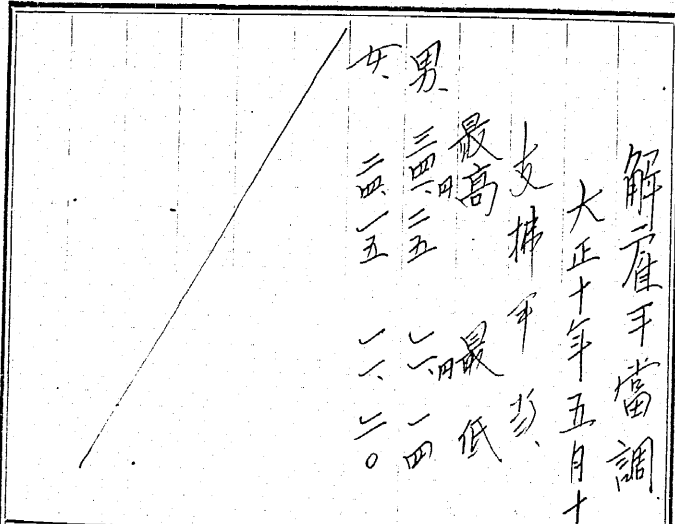 解雇手當調
大正十年五月十
支拂手当、
最高 最低
男、 三四、円二五 一一、円一四
女、 二四、一五 一一、二〇